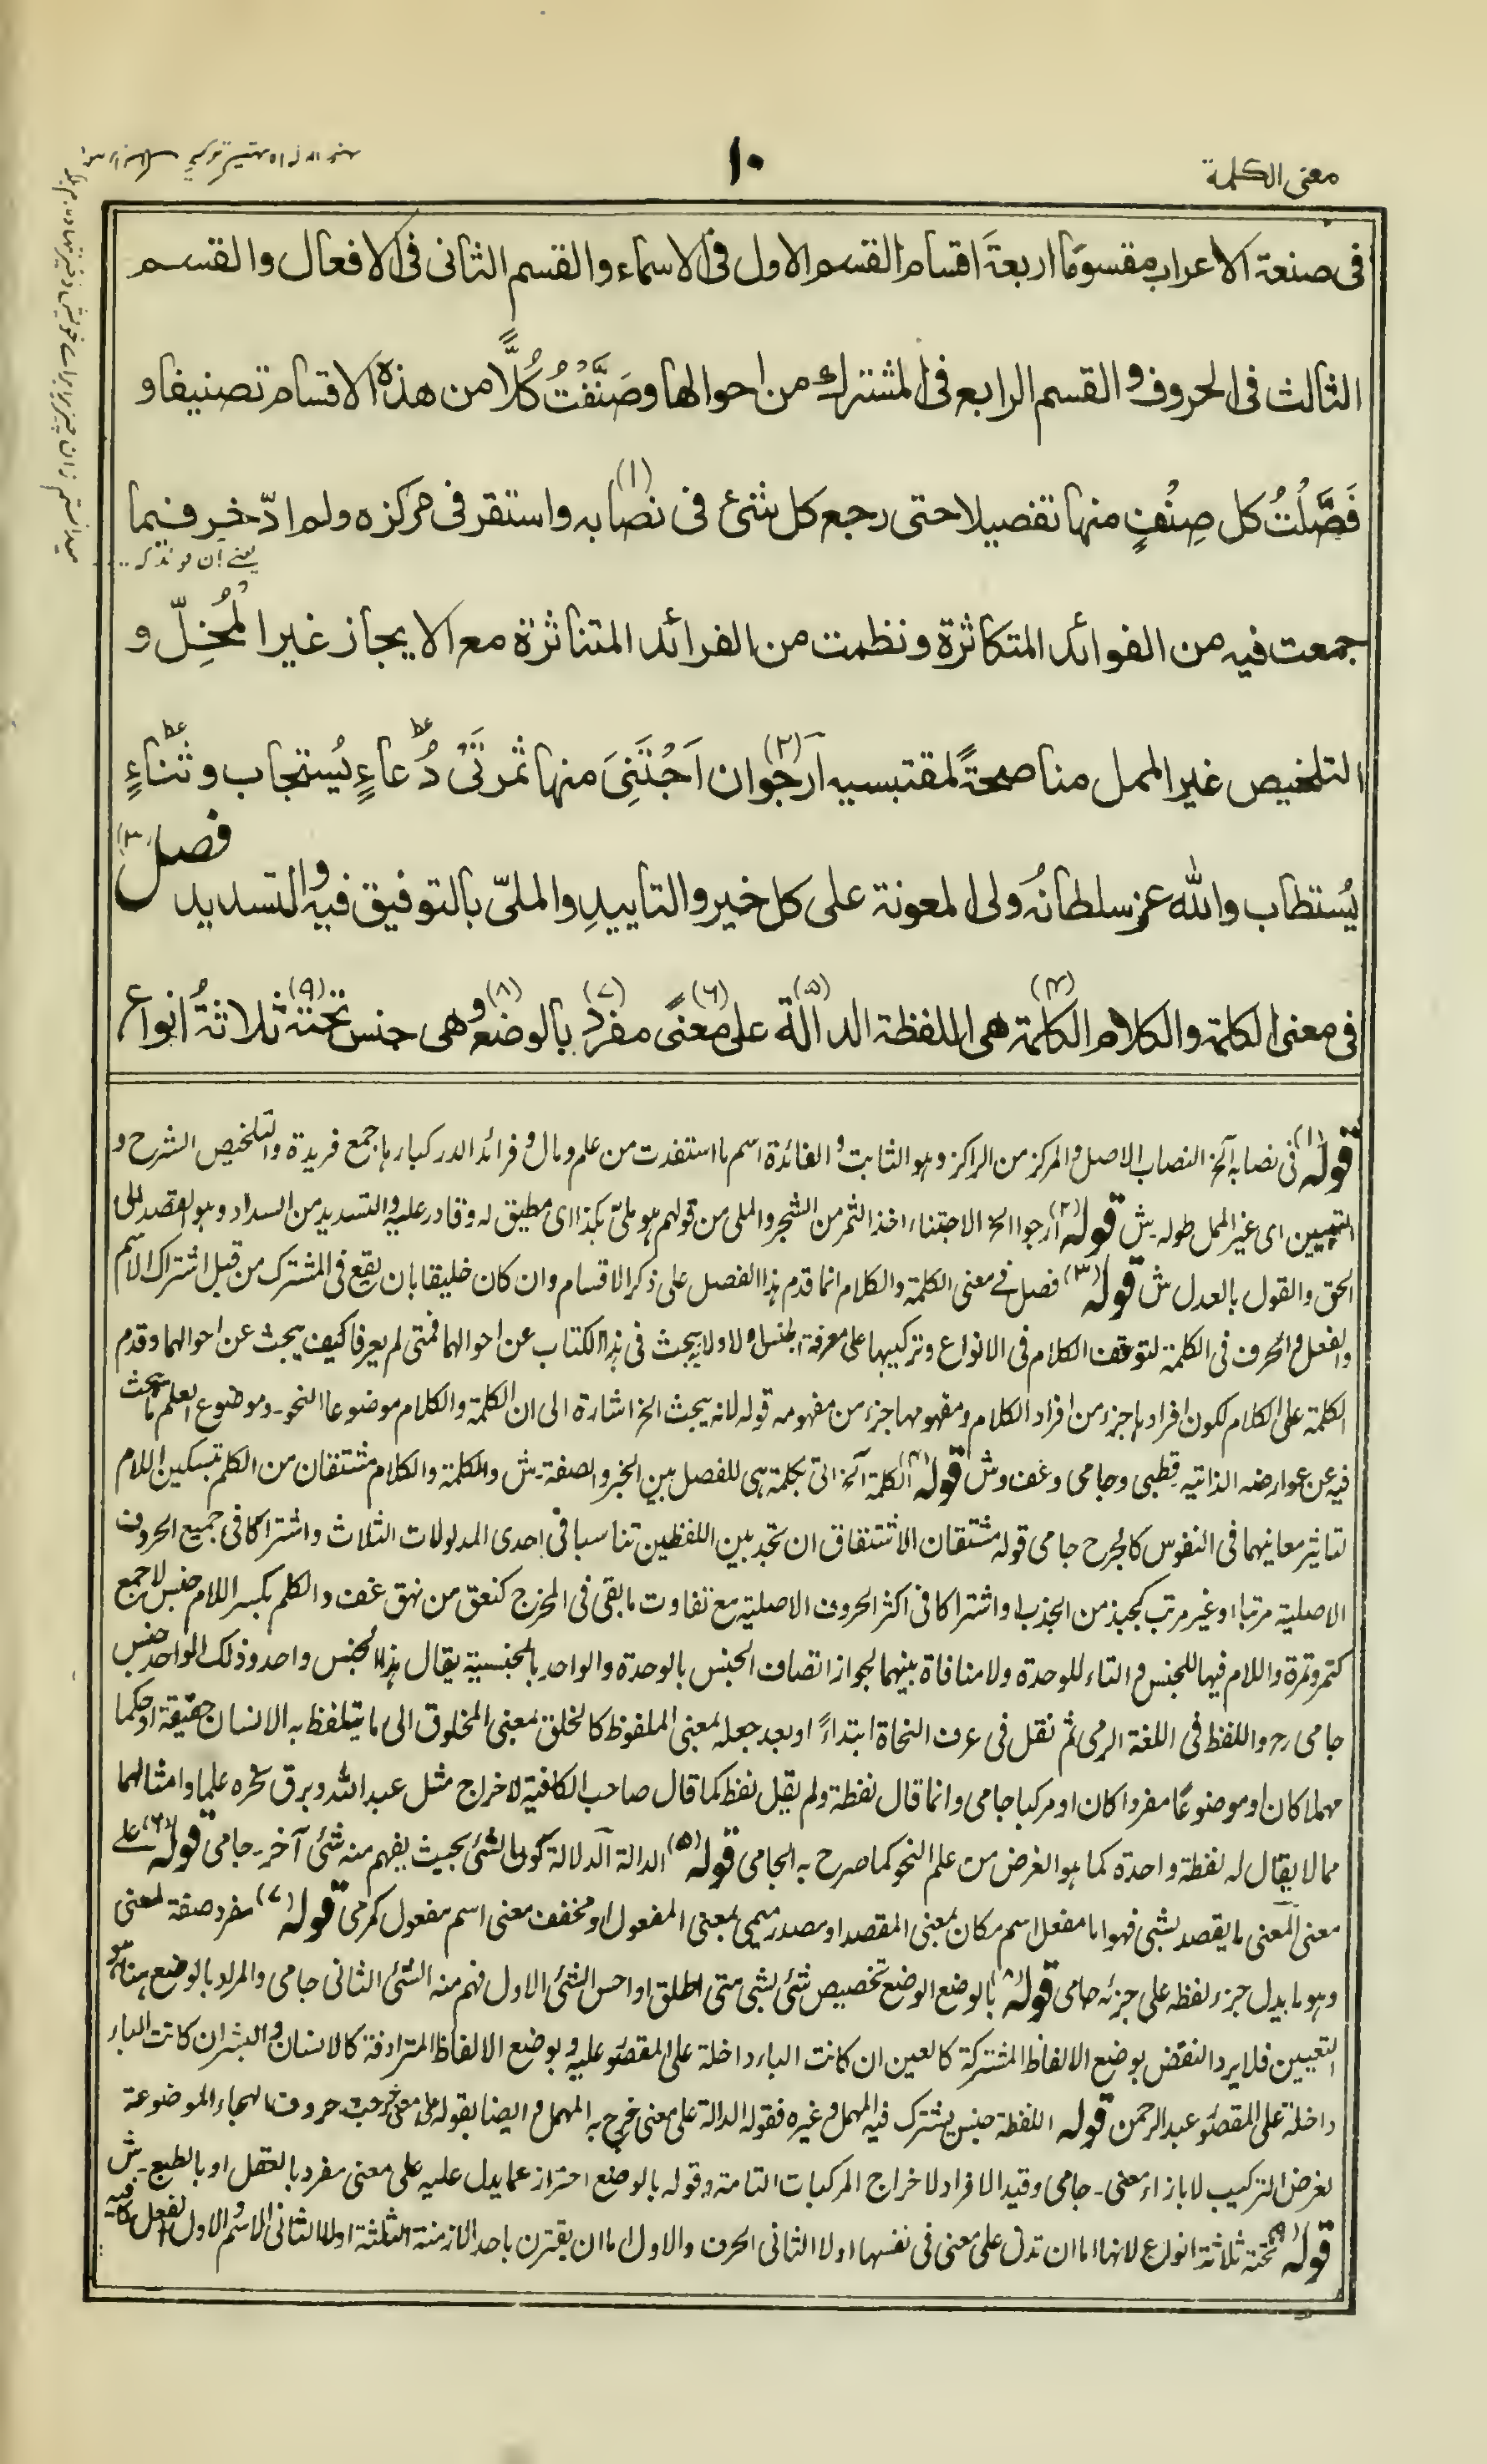 معنى الكلمة
١٠
فى صنعة الاعراب مقسومًا اربعةَ اقسام القسم الاول فى الاسماء والقسم الثانى فى الافعال والقسم
الثالث فى الحروف والقسم الرابع فى المشترك من احوالها وصَنَّفْتُ كُلًّا من هذه الاقسام تصنيفا و
فَصَّلْتُ كل صِنْفٍ منها تفصيلا حتى رجع كل شئ فى نصابه (١) واستقر فى مركزه ولم ادّخر فيما
جمعت فيه من الفوائد المتكاثرة ونظمت من الفرائد المتناثرة مع الايجاز غير المُخِلّ و
التلخيص غير الممل مناصحةً لمقتبسيه اَرجُو (٢) ان اَجْتَنِىَ منها ثمرتَىْ دُعاءٍ يُستجاب وثناءٍ
يُستطاب والله عز سلطانُه ولى المعونة على كل خير والتاييدِ والملىّ بالتوفيق فيه والتسديد فصل (٣)
فى معنى الكلمة والكلام الكلمة (٤) هى اللفظة الدالة (٥) على معنًى (٦) مفرد (٧) بالوضع (٨) وهى جنس تحته (٩) ثلاثةُ انواع
قوله (١) فى نصابه آلخ النصاب الاصل والمركز من الراكز وهو الثابت والفائدة اسم ما استفدت من علم ومال وفرائد الدر كبارها جمع فريدة والتلخيص الشرح و
التبيين اى غير الممل طوله ـ ش قوله (٢) ارجوا الخ الاجتناء اخذ الثمر من الشجر والملى من قولهم هو ملىّ بكذا اى مطيق له وقادر عليه والتسديد من السداد وهو القصد الى
الحق والقول بالعدل ش قوله (٣) فصل فى معنى الكلمة والكلام انما قدم هذا الفصل على ذكر الاقسام وان كان خليقا بان يقع فى المشترك من قبل اشتراك الاسم
والفعل والحرف فى الكلمة لتوقف الكلام فى الانواع وتركيبها على معرفة الجنس ولا ولانه يبحث فى هذا الكتاب عن احوالهما فمتى لم يعرفا كيف يبحث عن احوالهما وقدم
الكلمة على الكلام لكون افرادها جزء من افراد الكلام ومفهومها جزء من مفهومه قوله لانه يبحث الخ اشارة الى ان الكلمة والكلام موضوعا النحو ـ وموضوع العلم ما يبحث
فيه عن عوارضه الذاتية قطبى وجامى وغف وش قوله (٤) الكلمة آلخ اتى بكلمة هى للفصل بين الخبر والصفة ـ ش والكلمة والكلام مشتقان من الكلم بتسكين اللام
لتاثير معانيهما فى النفوس كالجرح جامى قوله مشتقان الاشتقاق ان تجد بين اللفظين تناسبا فى احدى المدلولات الثلاث واشتراكا فى جميع الحروف
الاصلية مرتبا او غير مرتب كجبذ من الجذب او اشتراكا فى اكثر الحروف الاصلية مع تفاوت ما بقى فى المخرج كنعق من نهق غف والكلم بكسر اللام جنس لا جمع
كتمر وتمرة واللام فيها للجنس والتاء للوحدة ولا منافاة بينهما لجواز اتصاف الجنس بالوحدة والواحد بالجنسية يقال هذا الجنس واحد وذلك الواحد جنس
جامى رح واللفظ فى اللغة الرمى ثم نقل فى عرف النحاة ابتداءً او بعد جعله بمعنى الملفوظ كالخلق بمعنى المخلوق الى ما يتلفظ به الانسان حقيقة او حكما
مهملا كان او موضوعًا مفردا كان او مركبا جامى وانما قال لفظة ولم يقل لفظ كما قال صاحب الكافية لاخراج مثل عبد الله وبرق نحره علما وامثالهما
مما لا يقال له لفظة واحدة كما هو الغرض من علم النحو كما صرح به الجامى قوله (٥) الدالة آلدلالة كون الشئ بحيث يفهم منه شئ آخر ـ جامى قوله (٦) على
معنى المعنى ما يقصد بشئ فهو اما مفعل اسم مكان بمعنى المقصد او مصدر ميمى بمعنى المفعول او مخفف معنى اسم مفعول كمرمى قوله (٧) مفرد صفة لمعنى
وهو ما يدل جزء لفظه على جزئه جامى قوله (٨) بالوضع الوضع تخصيص شئ بشئ متى اطلق او احس الشئ الاول فهم منه الشئ الثانى جامى والمراد بالوضع هنا هو
التعيين فلا يرد النقض بوضع الالفاظ المشتركة كالعين ان كانت الباء داخلة على المقصور عليه وبوضع الالفاظ المترادفة كالانسان والبشر ان كانت الباء
داخلة على المقصور عبد الرحمن قوله اللفظة جنس يشترك فيه المهمل وغيره فقوله الدالة على معنى خرج به المهمل وايضا بقوله على معنى خرجت حروف الهجاء الموضوعة
لغرض التركيب لا بازاء معنى ـ جامى وقيد الافراد لاخراج المركبات التامة وقوله بالوضع احتراز عما يدل عليه على معنى مفرد بالعقل او بالطبع ـ ش
قوله (٩) تحته ثلاثة انواع لانها اما ان تدل على معنى فى نفسها او لا الثانى الحرف والاول اما ان يقترن باحد الازمنة الثلثة او لا الثانى الاسم والاول الفعل كافيه